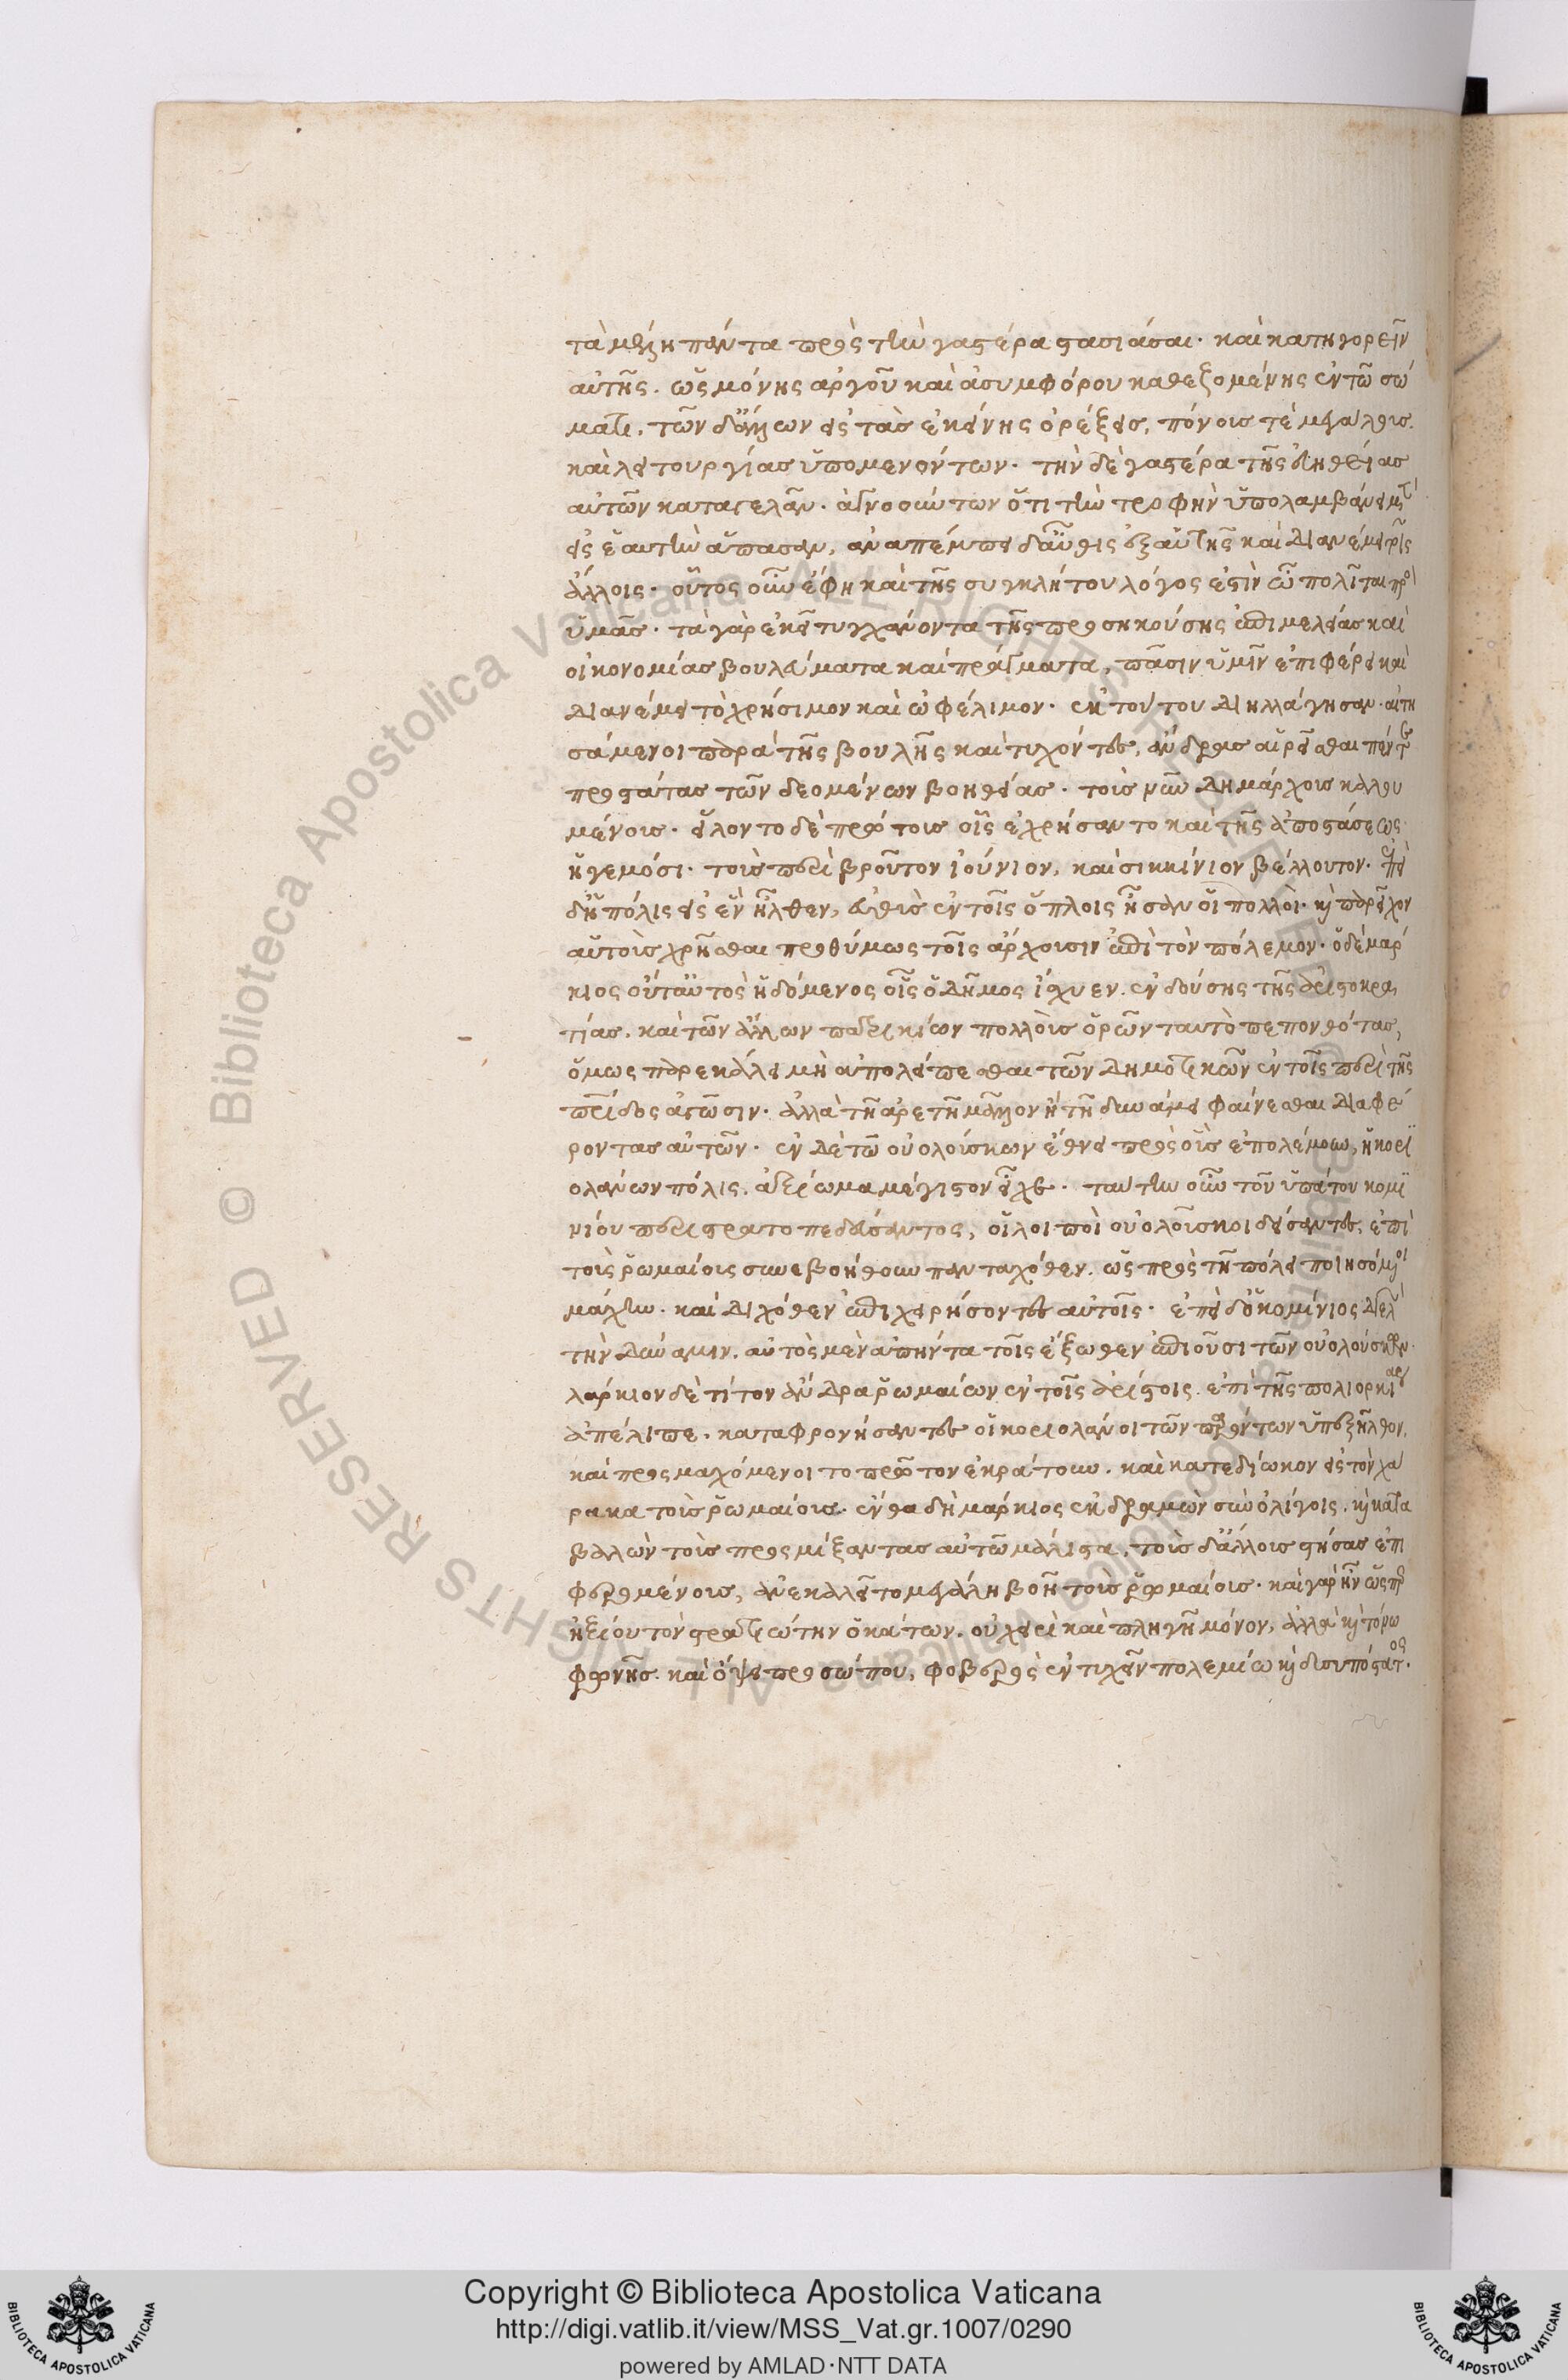 τὰ μέλη πάντα πρὸς τὴν γαστέρα στασιάσαι· καὶ κατηγορεῖν
αὐτῆς. ὡς μόνης ἀργοῦ καὶ ἀσυμφόρου καθεζομένης ἐν τῶ σώ
ματι. τῶν δ' ἄλλων εἰς τὰς ἐκείνης ὀρέξεις, πόνους τὲ μεγάλους
καὶ λειτουργίας ὑπομενόντων. τὴν δὲ γαστέρα τῆς εὐηθείας
αὐτῶν καταγελᾶν. ἀγνοούντων ὅτι τὴν τροφὴν ὑπολαμβάνει μ(ὲν)
εἰς ἑαυτὴν ἅπασαν, ἀναπέμπει δ' αὖθις ἐξ αὑτῆς καὶ διανέμει τοῖς
ἄλλοις. οὗτος οὖν ἔφη καὶ τῆς συγκλήτου λόγος ἐστὶν ὦ πολῖται πρὸ(ς)
ὑμᾶς. τὰ γὰρ ἐκεῖ τυγχάνοντα τῆς προσηκούσης ἐπιμελείας καὶ
οἰκονομίας βουλεύματα καὶ πράγματα, πᾶσιν ὑμῖν ἐπιφέρει καὶ
διανέμει τὸ χρήσιμον καὶ ὠφέλιμον. ἐκ τούτου διηλλάγησαν. αἰτη
σάμενοι παρὰ τῆς βουλῆς καὶ τυχόντες, ἄνδρας αἱρεῖσθαι πέντε
προστάτας τῶν δεομένων βοηθείας. τοὺς νῦν δημάρχους καλου
μένους. εἵλοντο δὲ πρώτους οἷς ἐχρήσαντο καὶ τῆς ἀποστάσεως
ἡγεμόσι. τοὺς περὶ βροῦτον ἰούνιον, καὶ σικκίνιον βέλλουτον. ἐπεὶ
δ' ἡ πόλις εἰς ἓν ἦλθεν, εὐθὺς ἐν τοῖς ὅπλοις ἦσαν οἱ πολλοί. κ(αὶ) παρεῖχον
αὑτοὺς χρῆσθαι προθύμως τοῖς ἄρχουσιν ἐπὶ τὸν πόλεμον. ὁ δὲ μάρ
κιος οὔτ' αὐτὸς ἡδόμενος οἷς ὁ δῆμος ἴσχυεν. ἐνδούσης τῆς ἀριστοκρα
τίας. καὶ τῶν ἄλλων πατρικίων πολλοὺς ὁρῶν ταυτὸ πεπονθότας,
ὅμως παρεκάλει μὴ ἀπολείπεσθαι τῶν δημοτικῶν ἐν τοῖς περὶ τῆς
π(ατ)ρίδος ἀγῶσιν. ἀλλὰ τῆ ἀρετῆ μᾶλλον ἢ τῆ δυνάμει φαίνεσθαι διαφέ
ροντας αὐτῶν. ἐν δὲ τῶ οὐολούσκων ἔθνει πρὸς οὓς ἐπολέμουν, ἡ κορι
ολάνων πόλις. ἀξίωμα μέγιστον εἶχε. ταύτην οὖν τοῦ ὑπάτου κομι
νίου περιστρατοπεδεύσαντος, οἱ λοιποὶ οὐολοῦσκοι δείσαντες, ἐπὶ
τοὺς ῥωμαίους συνεβοήθουν πανταχόθεν. ὡς πρὸς τῆ πόλει ποιησόμ(εν)οι
μάχην. καὶ διχόθεν ἐπιχειρήσοντες αὐτοῖς. ἐπεὶ δ' ὁ κομίνιος διελ(ὼν)
τὴν δύναμιν. αὐτὸς μὲν ἀπήντα τοῖς ἔξωθεν ἐπιοῦσι τῶν οὐολούσκων.
λάρκιον δὲ τίτον ἄνδρα ῥωμαίων ἐν τοῖς ἀρίστοις. ἐπὶ τῆς πολιορκίας
ἀπέλιπε. καταφρονήσαντες οἱ κοριολάνοι τῶν παρόντων ὑπεξῆλθον.
καὶ προσμαχόμενοι τὸ πρῶτον ἐκράτουν. καὶ κατεδίωκον εἰς τὸν χά
ρακα τοὺς ῥωμαίους. ἔνθα δὴ μάρκιος ἐκδραμὼν σὺν ὀλίγοις. κ(αὶ) κατα
βαλὼν τοὺς προσμίξαντας αὐτῶ μάλιστα, τοὺς δ' ἄλλους στήσας ἐπι
φερομένους, ἀνεκαλεῖτο μεγάλη βοῆ τοὺς ῥωμαίους. καὶ γὰρ ἦν ὥσπερ
ἠξίου τὸν στρατιώτην ὁ κάτων. οὐ χειρὶ καὶ πληγῆ μόνον, ἀλλὰ κ(αὶ) τόνω
φωνῆς. καὶ ὄψει προσώπου, φοβερὸς ἐντυχεῖν πολεμίω κ(αὶ) δυσυπόστατος.
Copyright © Biblioteca Apostolica Vaticana
http://digi.vatlib.it/view/MSS_Vat.gr.1007/0290
powered by AMLAD·NTT DATA
BIBLIOTECA APOSTOLICA VATICANA
BIBLIOTECA APOSTOLICA VATICANA
© Biblioteca Apostolica Vaticana ALL RIGHTS RESERVED